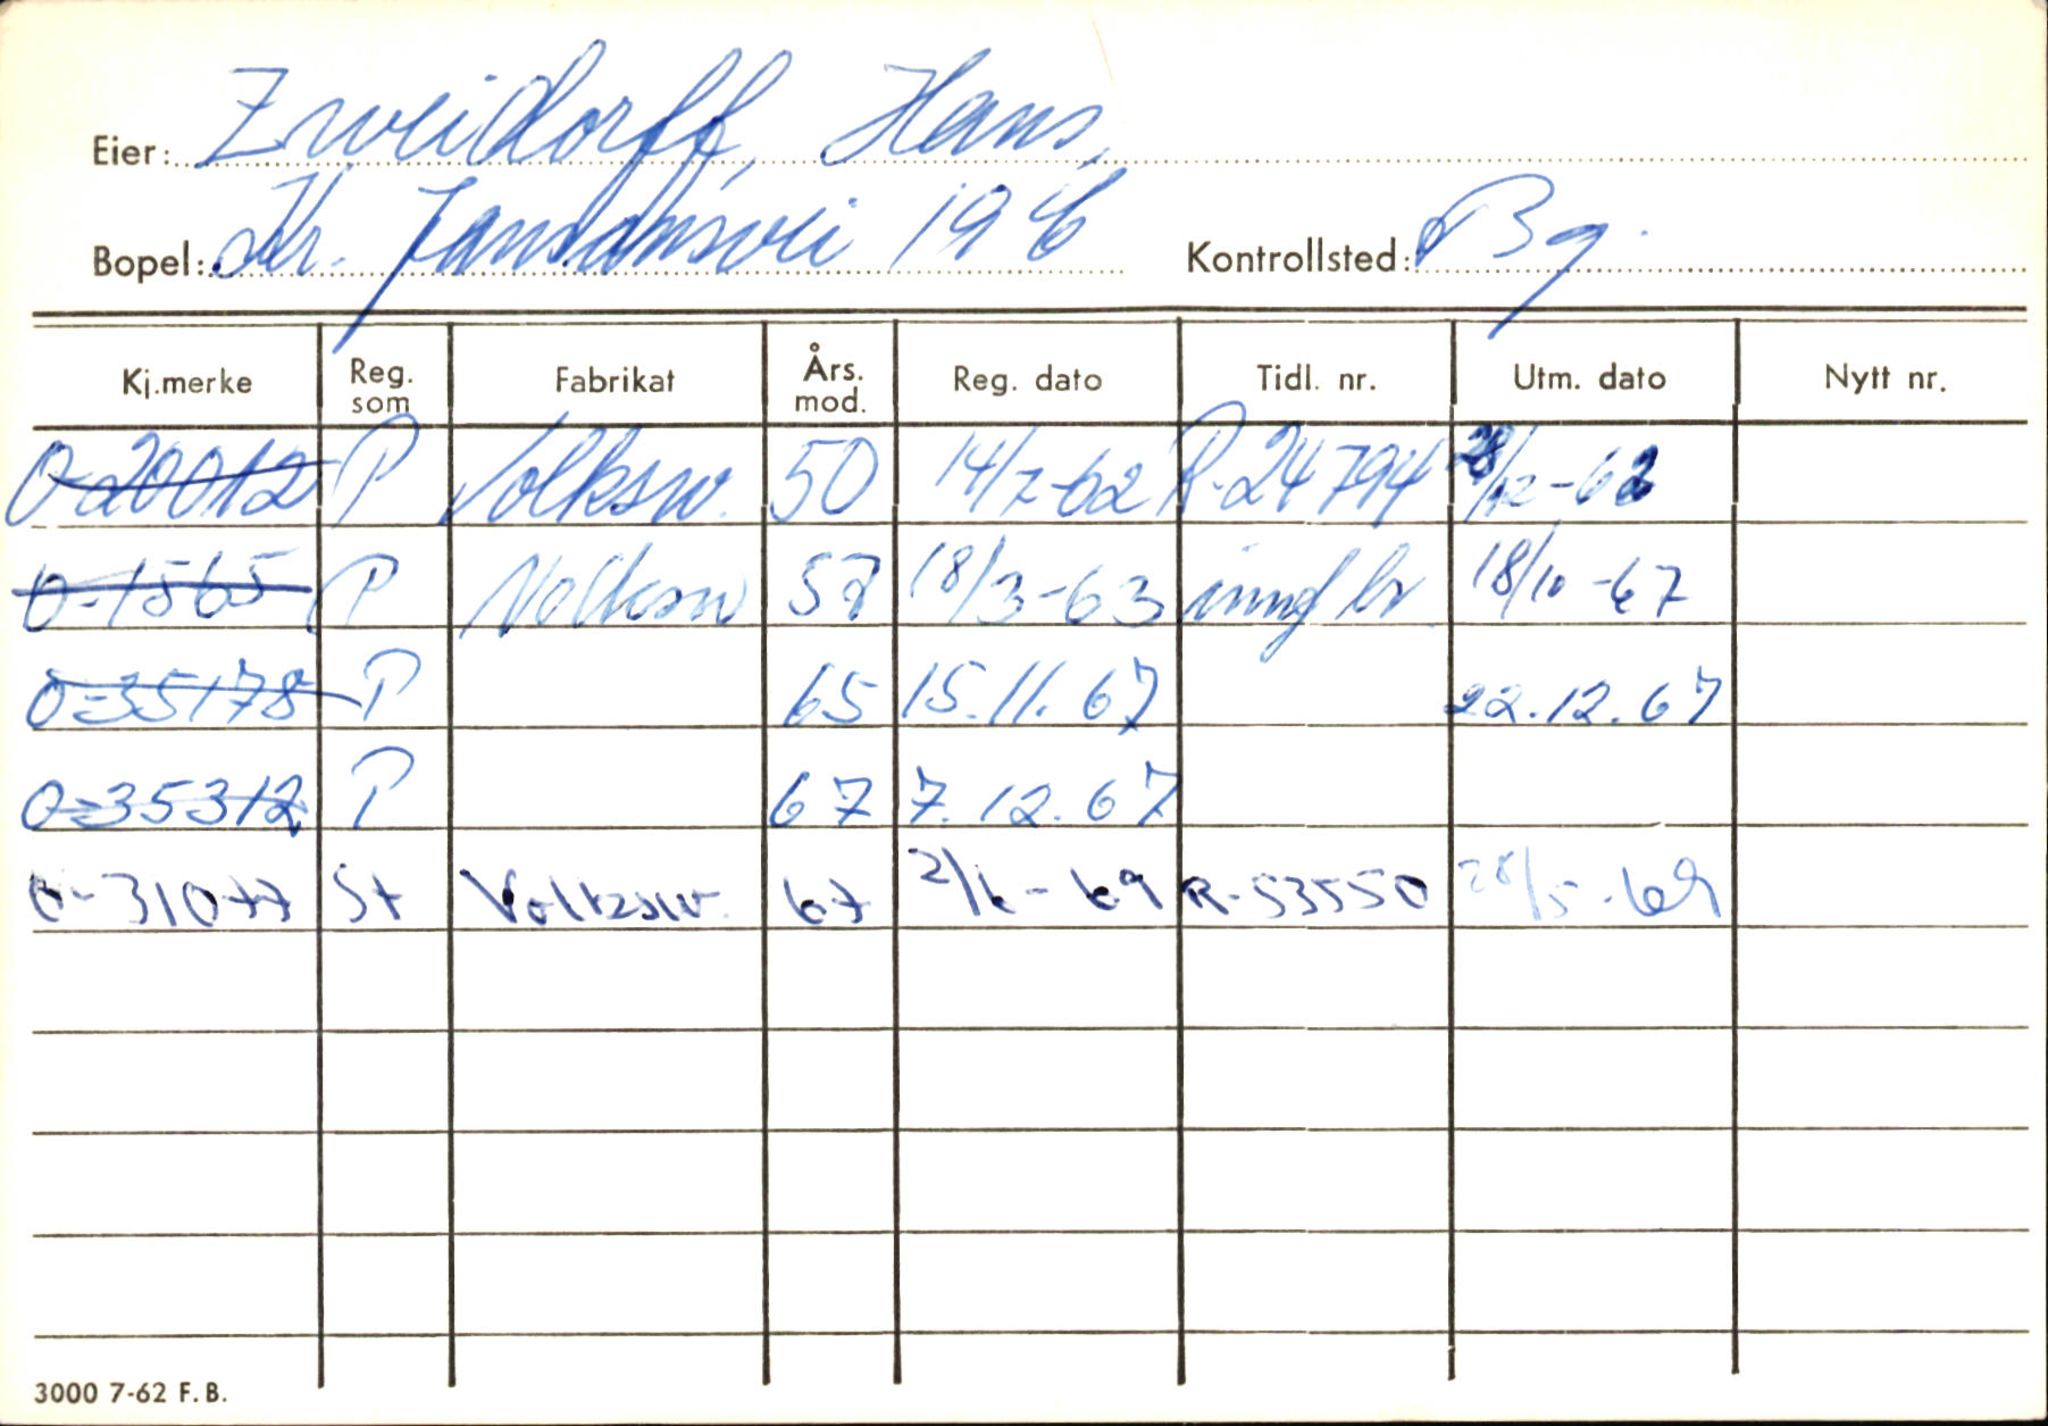 Eier: Zweidorff, Hans,
Bopel: Kr. Jansonsvei 19 b Kontrollsted: Bg.
Kj.merke Reg. som Fabrikat Års. mod. Reg. dato Tidl. nr. Utm. dato Nytt nr.
O-20012 P Volksw. 50 14/7-62 R-24794 28/12-62
O-1565 P Volksw 57 18/3-63 innf br 18/10-67
O-35178 P 65 15.11.67 22.12.67
O-35312 P 67 7.12.67
O-31077 St Volksw. 67 2/6-69 R-53550 28/5-69
3000 7-62 F.B.